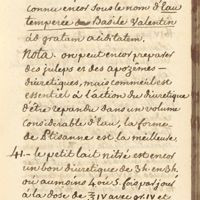 connu encor sous le nom d'eau
temperée de Bas de Valentin
ob gratam aciditatem.
Nota. on peut encor preparer
des juleps et des apozèmes –
diuretiques, mais comme il est
essentiel à l'action du diuretique
d'être repandu dans un volume
considérable d'eau, la forme
de Ptisanne est la meilleure.
41. – le petit lait nitré est encor
un bon diuretique de 3h. en 3h.
ou au moins 4 ou 5. fois par jour
à la dose de ℥ IV avec gr. IV et